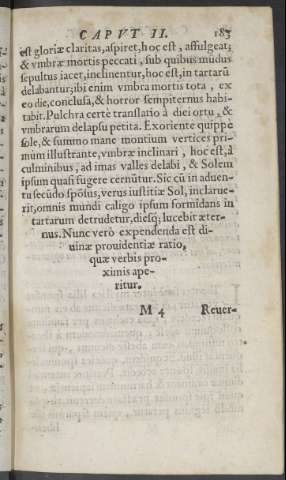 CAPVT II. 183
est gloriæ claritas, aspiret, hoc est, affulgeat;
& vmbræ mortis peccati, sub quibus mūdus
sepultus iacet, inclinentur, hoc est, in tartarū
delabantur; ibi enim vmbra mortis tota, ex
eo die, conclusa, & horror sempiternus habi-
tabit. Pulchra certè translatio à diei ortu, &
vmbrarum delapsu petita. Exoriente quippe
sole, & summo mane montium vertices pri-
mum illustrante, vmbræ inclinari, hoc est, à
culminibus, ad imas valles delabi, & Solem
ipsum quasi fugere cernūtur. Sic cū in aduen-
tu secūdo spōsus, verus iustitiæ Sol, inclarue-
rit, omnis mundi caligo ipsum formidans in
tartarum detrudetur, diesq; lucebit æter-
nus. Nunc verò expendenda est di-
uinæ prouidentiæ ratio,
quæ verbis pro-
ximis ape-
ritur.
M 4 Reuer-